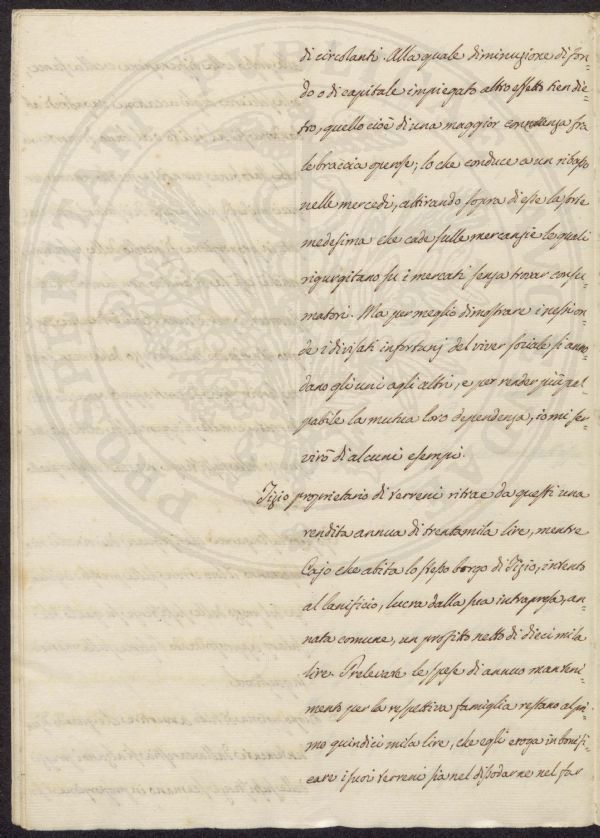 di circolanti. Alla quale diminuzione di fon-
do o di capitale impiegato altro effetto tien die-
tro, quello cioè di una maggior concorrenza fra
le braccia operose; lo che conduce a un ribasso
nelle mercedi, attirando sopra di esse la sorte
medesima che cade sulle mercanzie le quali
rigurgitano su i mercati senza trovar consu-
matori. Ma per meglio dimostrare i nessi on-
de i divisati infortunj del viver sociale si anno-
dano gli uni agli altri, e per render più pal-
pabile la mutua loro dependenza, io mi ser-
virò di alcuni esempi.
Tizio proprietario di terreni ritrae da questi una
rendita annua di trentamila lire, mentre
Cajo che abita lo stesso borgo di Tizio, intento
al lanificio, lucra dalla sua intrapresa, an-
nata comune, un profitto netto di dieci mila
lire. Prelevate le spese di annuo manteni-
mento per la respettiva famiglia restano al pri-
mo quindici mila lire, che egli eroga in bonifi-
care i suoi terreni sia nel dissodarne nel far
PROSPERITATI PUBLICAE AUGENDAE